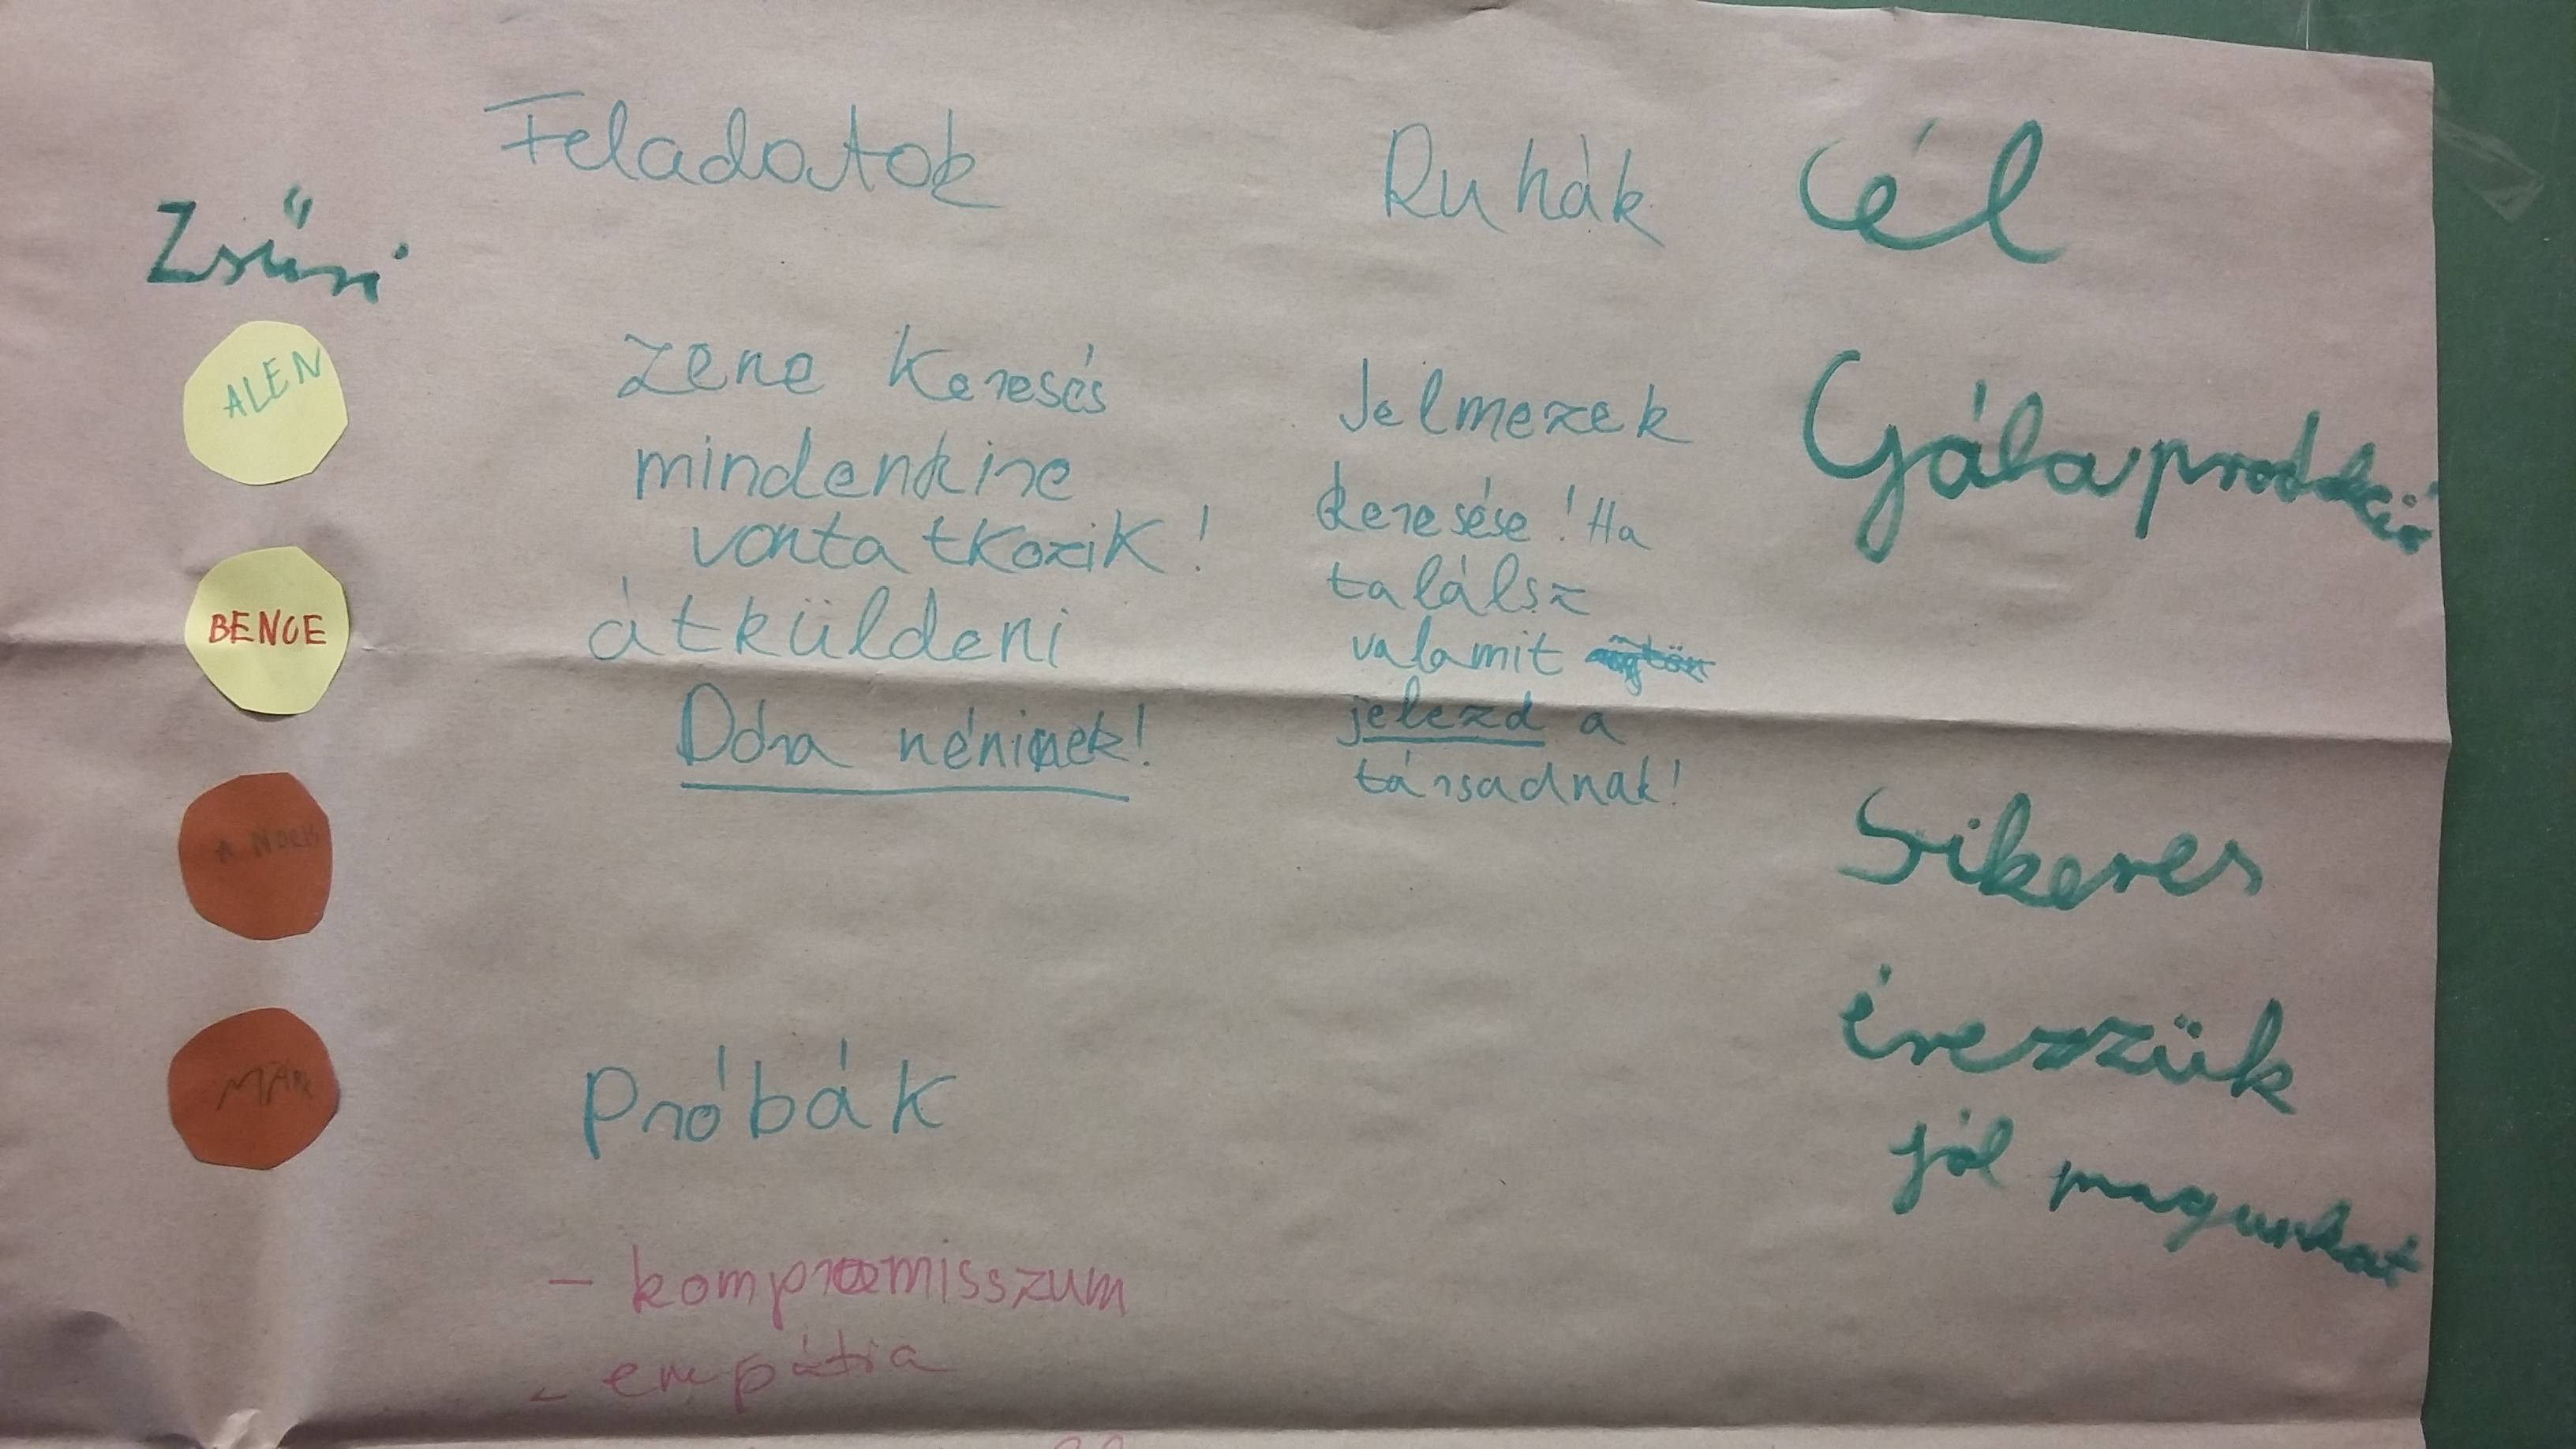 Zsűri
ALEN
BENCE
MÁRK
Feladatok
zene keresés
mindenkire
vonatkozik!
átküldeni
Dóra néninek!
Próbák
- kompromisszum
- empátia
Ruhák
Jelmezek
keresése! Ha
találsz
valamit
jelezd a
társadnak!
Cél
Gálaprodukció
Sikeres
érezzük
jól magunkat